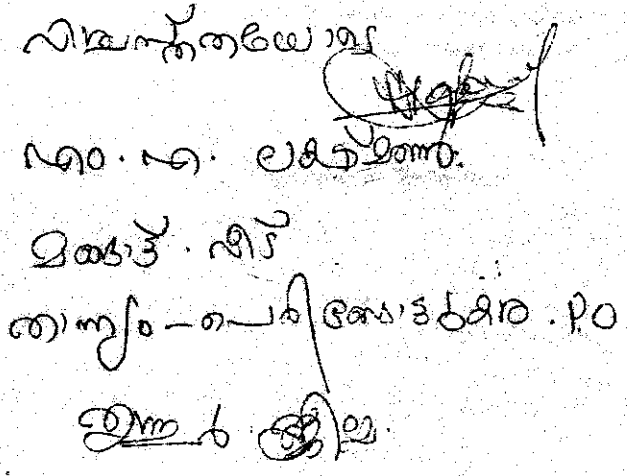 വിശ്വസ്തതയോടെ
എം. എ. ലക്ഷ്മണൻ.
മങ്ങാട്ട് വീട്
താന്ന്യം - പെരിങ്ങോട്ടുകര . P.O
തൃശ്ശൂർ ജില്ല.